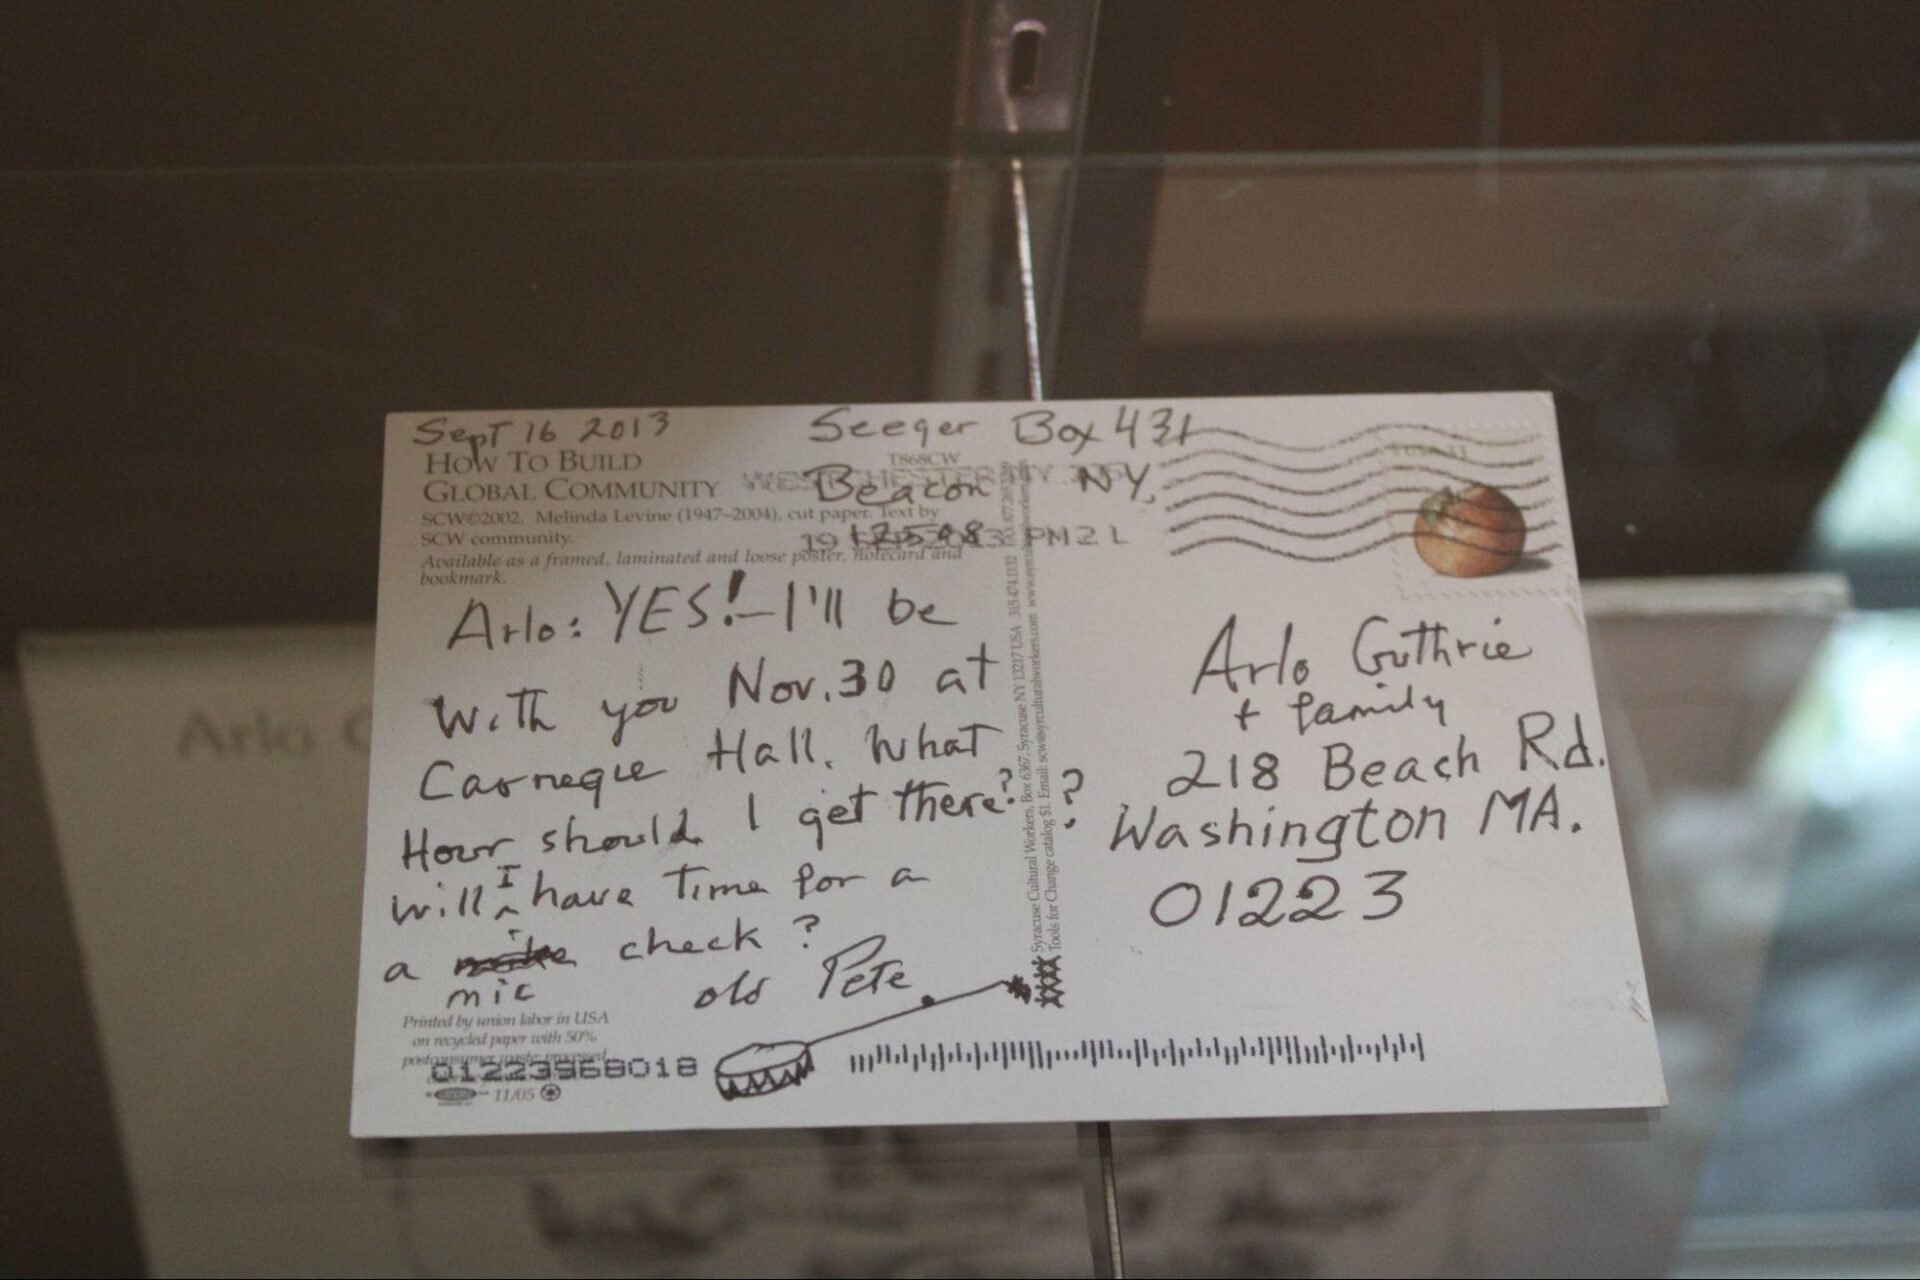 Sept 16 2013
Seeger Box 431
Beacon NY,
12508
HOW TO BUILD
GLOBAL COMMUNITY
T868CW
WESTCHESTER NY
SCW©2002. Melinda Levine (1947–2004), cut paper. Text by
SCW community.
PM 2 L
Available as a framed, laminated and loose poster, notecard and
bookmark.
Arlo: YES!—I'll be
with you Nov. 30 at
Carnegie Hall. What
Hour should I get there? ?
will I have time for a
a check?
mic
old Pete
Printed by union labor in USA
on recycled paper with 50%
postconsumer waste processed
01223968018
11/05
Syracuse Cultural Workers, Box 6367, Syracuse NY 13217 USA 315.474.1132 FAX 877.265.5399
Tools for Change catalog $1. Email: scw@syrculturalworkers.com www.syrculturalworkers.com
Arlo Guthrie
+ family
218 Beach Rd.
Washington MA.
01223
Arlo